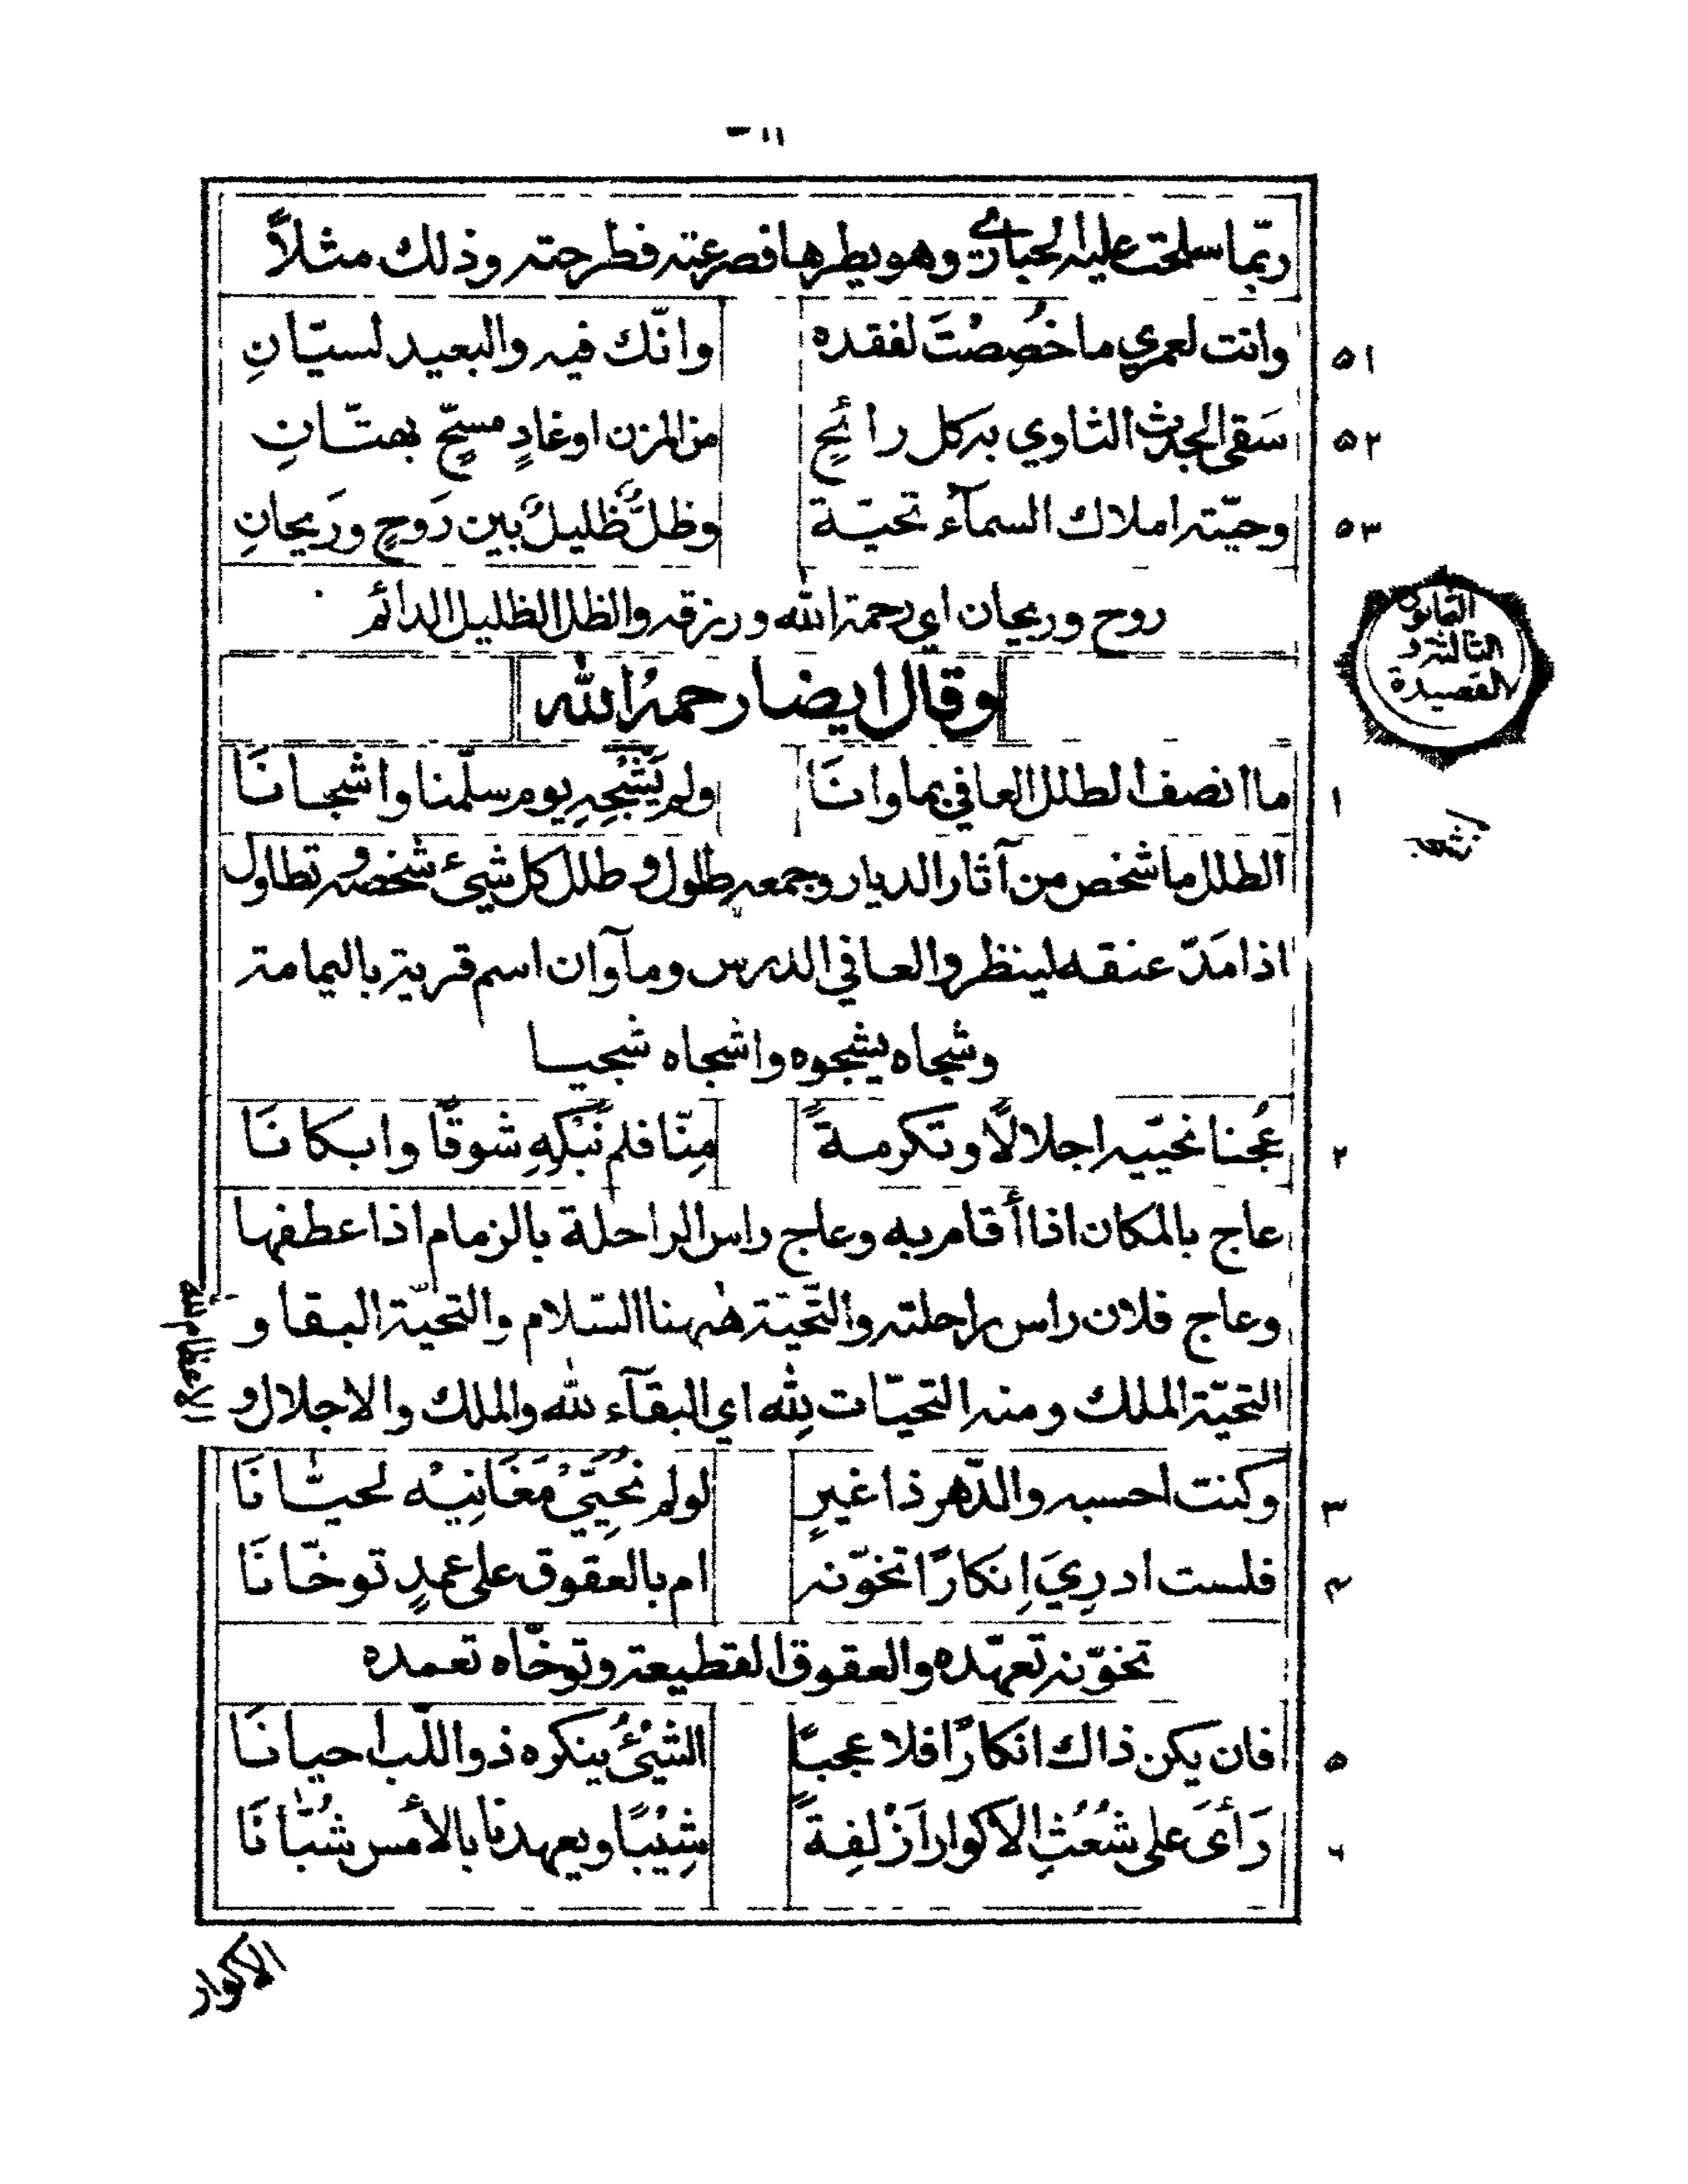 ربّما سلحت عليه الحبارى وهو يطرها فصرعته فطرحته وذلك مثلاً
٥١ وانت لعمري ما خُصِصْتَ لفقده وانّك فيه والبعيد لسيّانِ
٥٢ سَقى الجدث الثاوي به كل رائحٍ من المزن او غادٍ مسحٍّ بهتّانِ
٥٣ وحيّته املاك السمآء تحيّة وظلٌّ ظليلٌ بين رَوحٍ ورَيحانِ
روح وريحان اي رحمة الله ورزقه والظل الظليل الدائم
وقال ايضا رحمه الله
القانون
الثالثة و
القصيدة
١ ما انصف الطلل العافي بماوانَا ولم يَشْجِهِ يوم سلّمنا واشجانَا
الطلل ما شخص من آثار الديار وجمعه طلول و طلل كل شيئ شخصه و تطاول
اذا مَدّ عنقه لينظر والعافي الدرس ومآوان اسم قرية باليمامة
وشجاه يشجوه واشجاه شجيا
٢ عُجنا نحيّيه اجلالًا وتكرمةً مِنّا فلم نُبْكِهِ شوقًا وابكانَا
عاج بالمكان اذا أقام به وعاج راس الراحلة بالزمام اذا عطفها
وعاج فلان راس راحلته والتّحيّة هٰهنا السّلام والتحيّة البقا و
التحيّة الملك ومنه التحيّات لله اي البقآء لله والملك والاجلال و
الاعظام لله
٣ وكنت احسبه والدّهر ذا غيرٍ لو لم نُحَيِّي مَغَانِيْه لحيّانَا
٤ فلست ادرِيَ اِنكارًا تخوّنه ام بالعقوق على عمدٍ توخّانَا
تخوّنه تعهّده والعقوق القطيعة وتوخّاه تعمده
٥ فان يكن ذاك انكارًا فلا عجبًا الشيْئُ ينكره ذو اللّب احيانَا
٦ رَأىَ على شُعُثِ الاكوار اَزْلِفِةً شِيْبًا ويعهدنا بالأمس شُبّانَا
الاكوار